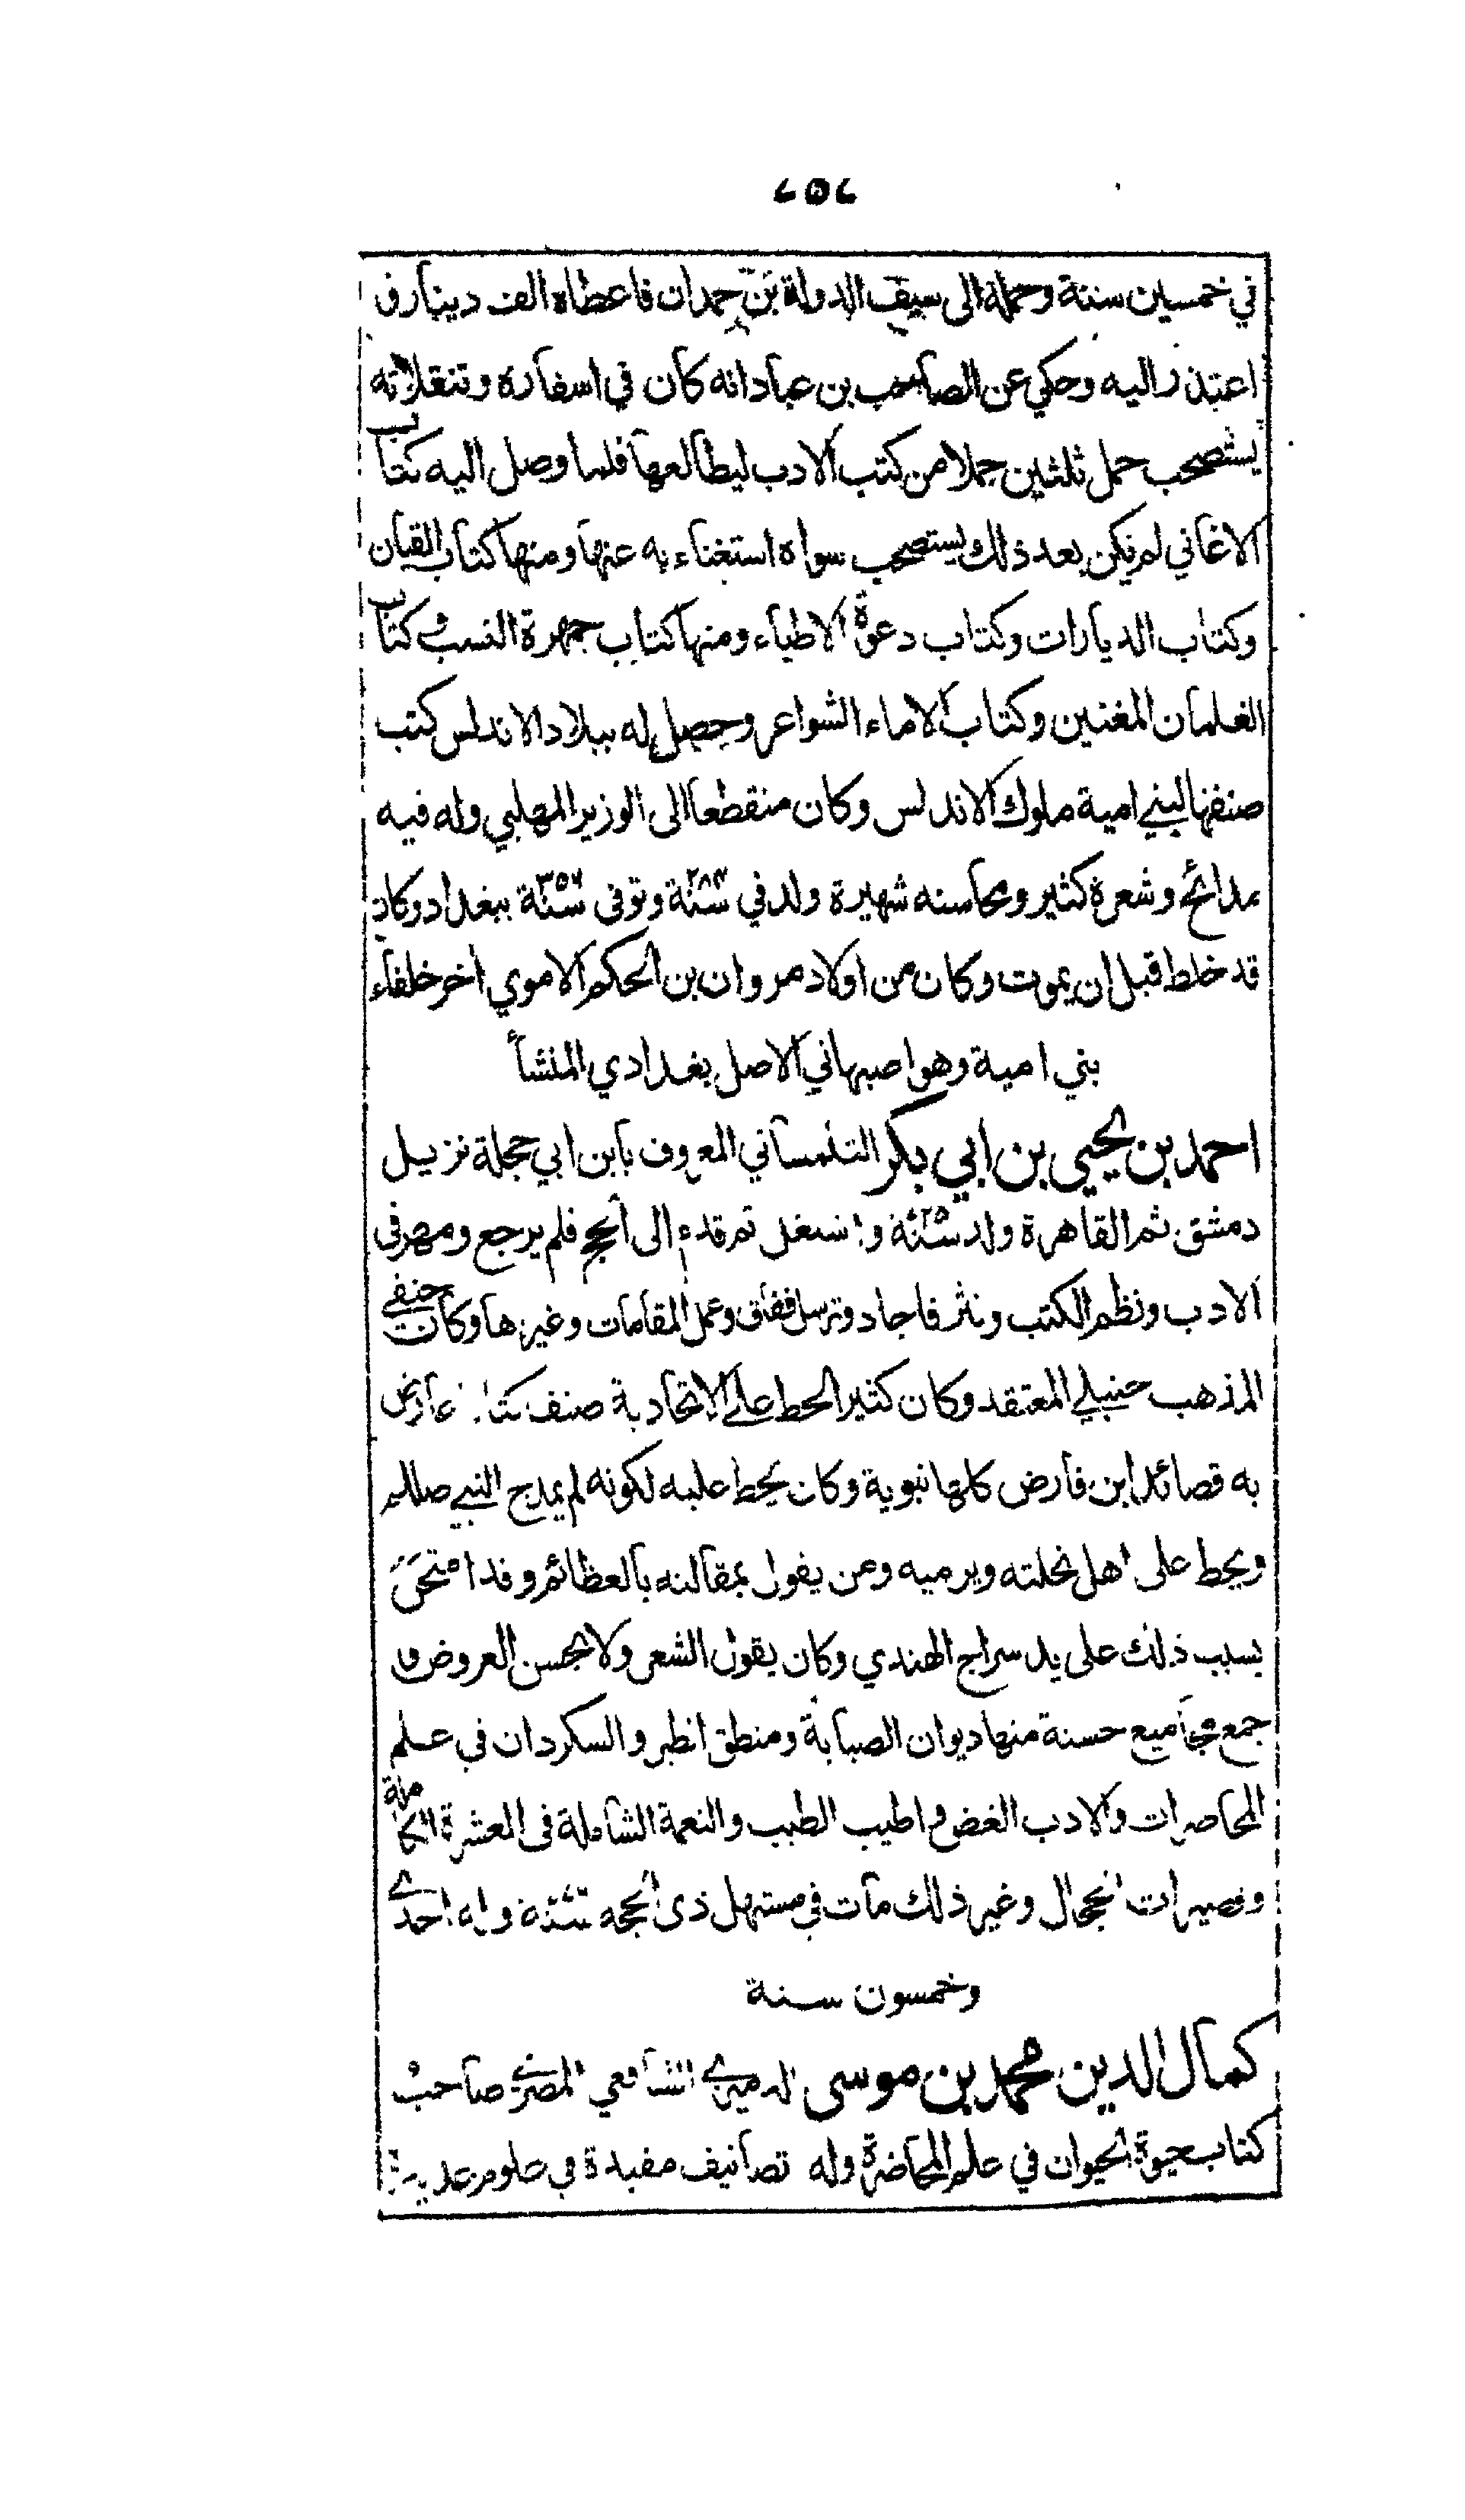 ٢٥٢
في خمسين سنة وحمله الى سيف الدولة بن حمدان فاعطاه الف دينار و
اعتذر اليه وحكي عن الصاحب بن عباد انه كان في اسفاره وتنقلاته
يستصحب حمل ثلثين جملا من كتب الادب ليطالعها فلما وصل اليه كتاب
الاغاني لم يكن بعد ذلك يستصحب سواه استغناء به عنها ومنها كتاب القيان
وكتاب الديارات وكتاب دعوة الاطباء ومنها كتاب جمهرة النسب و كتاب
الغلمان المغنين وكتاب الاماء الشواعر وحصل له ببلاد الاندلس كتب
صنفها لبني امية ملوك الاندلس وكان منقطعا الى الوزير المهلبي وله فيه
مدائح وشعره كثير ومحاسنه شهيرة ولد في سنة ٢٨٤ وتوفى سنة ٣٥٧ ببغداد وكان
قد خلط قبل ان يموت وكان من اولاد مروان بن الحكم الاموي اخر خلفاء
بني امية وهو اصبهاني الاصل بغدادي المنشأ
احمد بن يحيى بن ابي بكر التلمساني المعروف بابن ابي حجلة نزيل
دمشق ثم القاهرة ولد سنة ٧٢٥ واشتغل ثم قدم الى الحج فلم يرجع ومهر في
الادب ونظم الكتب ونثر فاجاد وترسل ففاق وعمل المقامات وغيرها وكان حنفي
المذهب حنبلي المعتقد وكان كثير الحط على الاتحادية صنف كتابا عارض
به قصائد ابن فارض كلها نبوية وكان يحط عليه لكونه لم يمدح النبي صللم
ويحط على اهل نحلته ويرميه ومن يقول بمقالته بالعظائم وقد امتحن
بسبب ذلك على يد سراج الهندي وكان يقول الشعر ولا يحسن العروض و
جمع مجاميع حسنة منها ديوان الصبابة ومنطق الطير والسكردان في علم
المحاضرات والادب الغض و اطيب الطيب والنعمة الشاملة في العشرة الكاملة
و الجمال وغير ذلك مات في مستهل ذى الحجه وله احدى
وخمسون سنة
كمال الدين محمد بن موسى الدميري الشافعي المصري صاحب
كتاب حيوة الحيوان في علم المحاضرة وله تصانيف مفيدة في علوم عديدة